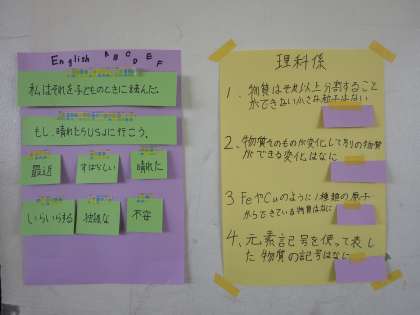 English ABCDEF
私はそれを子どものときに読んだ。
もし、晴れたらUSJに行こう。
最近 すばらしい 晴れた
いらいらする 独特な 不安
理科係
1、物質はそれ以上分割すること
ができない小さな粒子はなに
2、物質そのものが変化して別の物質
ができる変化はなに
3 FeやCuのように1種類の原子
からできている物質はなに
4、元素記号を使って表し
た物質の記号はなに